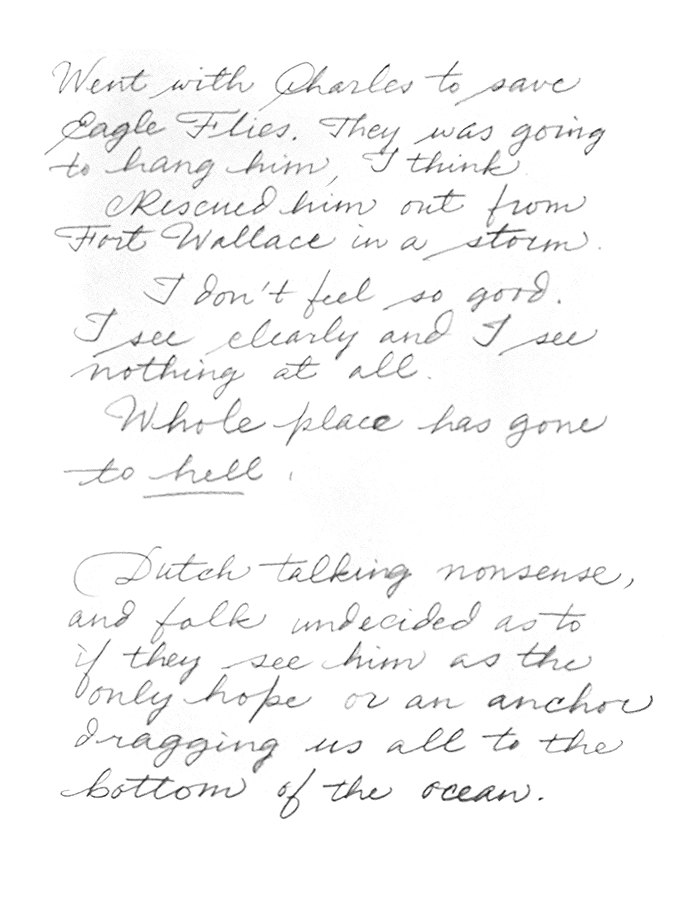 Went with Charles to save
Eagle Flies. They was going
to hang him, I think
Rescued him out from
Fort Wallace in a storm.
I don't feel so good.
I see clearly and I see
nothing at all.
Whole place has gone
to hell.
Dutch talking nonsense,
and folk undecided as to
if they see him as the
only hope or an anchor
dragging us all to the
bottom of the ocean.